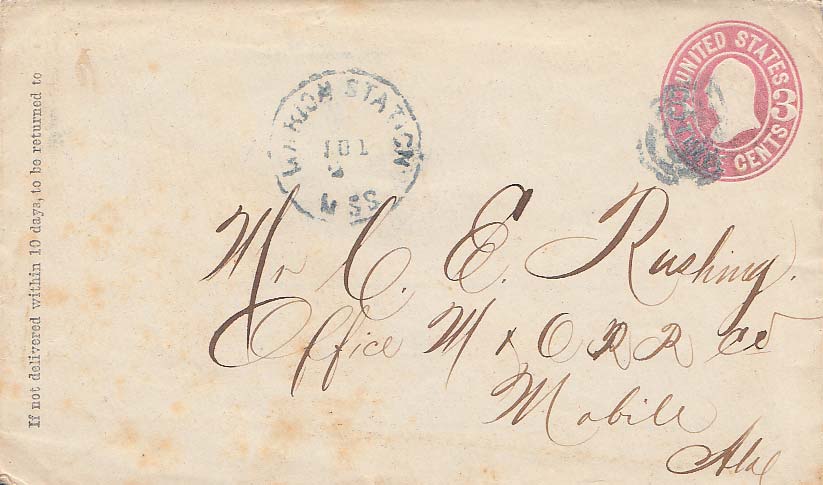 If not delivered within 10 days, to be returned to
MARION STATION
MISS
UNITED STATES
3
CENTS
Mr C. E. Rushing.
Office M & O R R Co
Mobile
Ala